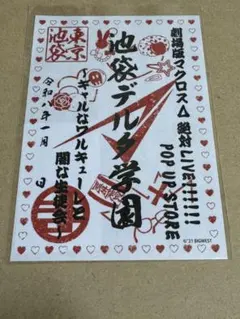 劇場版マクロスΔ 絶対LIVE!!!!!!
POP UP STORE
東京
池袋
池袋デルタ学園
~ギャルなワルキューレと
闇な生徒会~
令和八年一月 日
©'21 BIGWEST